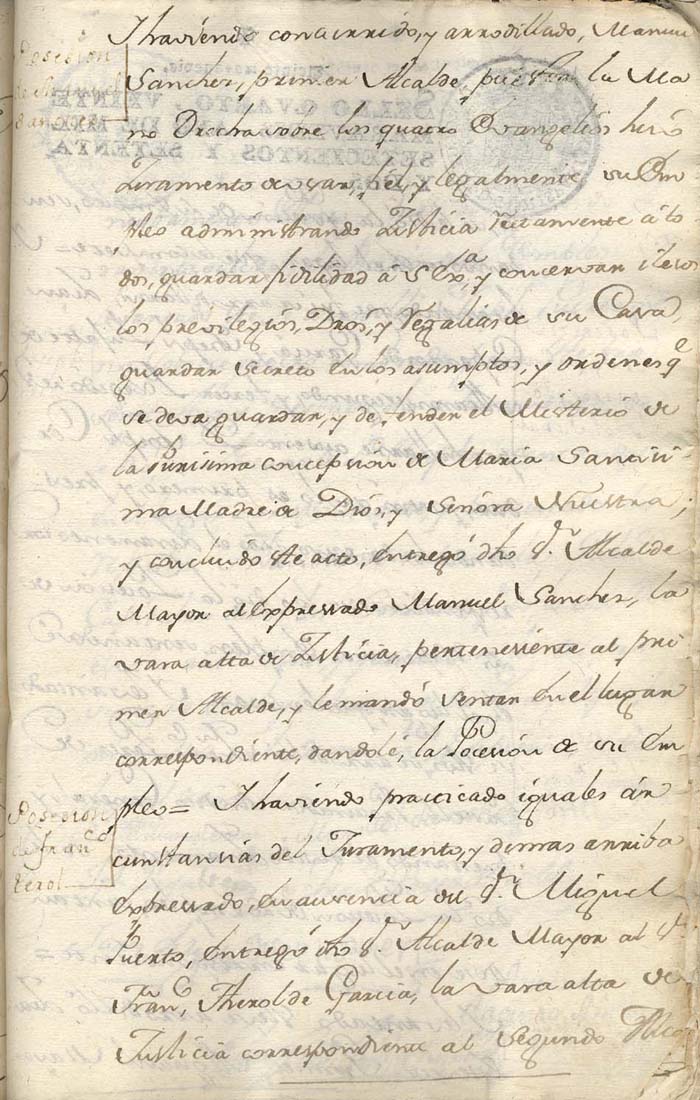 Posesion
de Manuel
Sanchez
Y haviendo concurrido, y arrodillado, Manuel
Sanchez, primer Alcalde, puesta la Ma
no Drecha sobre los quatro Evangelios hizo
Juramento de usar, fiel, y legalmente su Em
pleo administrando Justicia rectamente á to
dos, guardar fidilidad á S. Exª, y conservar ilesos
los previlegios, Drós, y Regalias de su Casa,
guardar secreto en los asumptos, y ordenes qe
se deva guardar, y defender el Misterio de
la Purisima concepsion de Maria Santisi
ma Madre de Diós, y Señora Nuestra;
y concluido este acto, entregó dho Sr. Alcalde
Mayor al expressado Manuel Sanchez, la
vara alta de Justicia, perteneciente al pri
mer Alcalde, y le mandó sentar en el lugar
correspondiente, dandole, la Pocesion de su Em
pleo = Y haviendo practicado iguales cir
cunstansias del Juramento, y demas arriba
Posesion
de Franco
Terol
expressado, en ausencia de Sr. Miguel
Puerto, entregó dho Sr. Alcalde Mayor al Sr.
Franco Therol de Garcia, la vara alta de
Justicia correspondiente al Segundo Alca
SELLO QVARTO, VEINTE
SETECIENTOS Y SETENTA